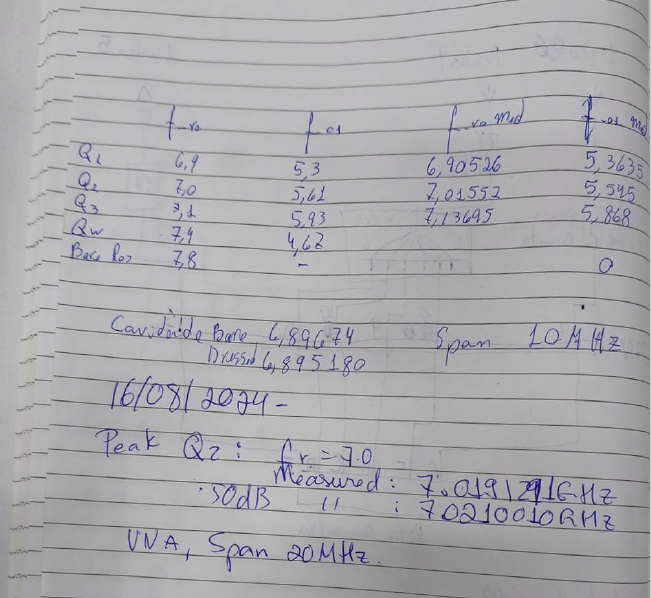 f_ro f_01 f_ro Med f_01 Med
Q1 6,9 5,3 6,90526 5,3635
Q2 7,0 5,61 7,01552 5,545
Q3 7,1 5,93 7,13695 5,868
Qw 7,4 4,67
Bare Res 7,8 - 0
Bare 6,89674 Span 10MHz
Dressed 6,895180
16/08/2024-
Peak Q2: fr = 7.0
Measured: GHz
-50dB " : 7.0210010GHz
VNA, Span 20MHz.